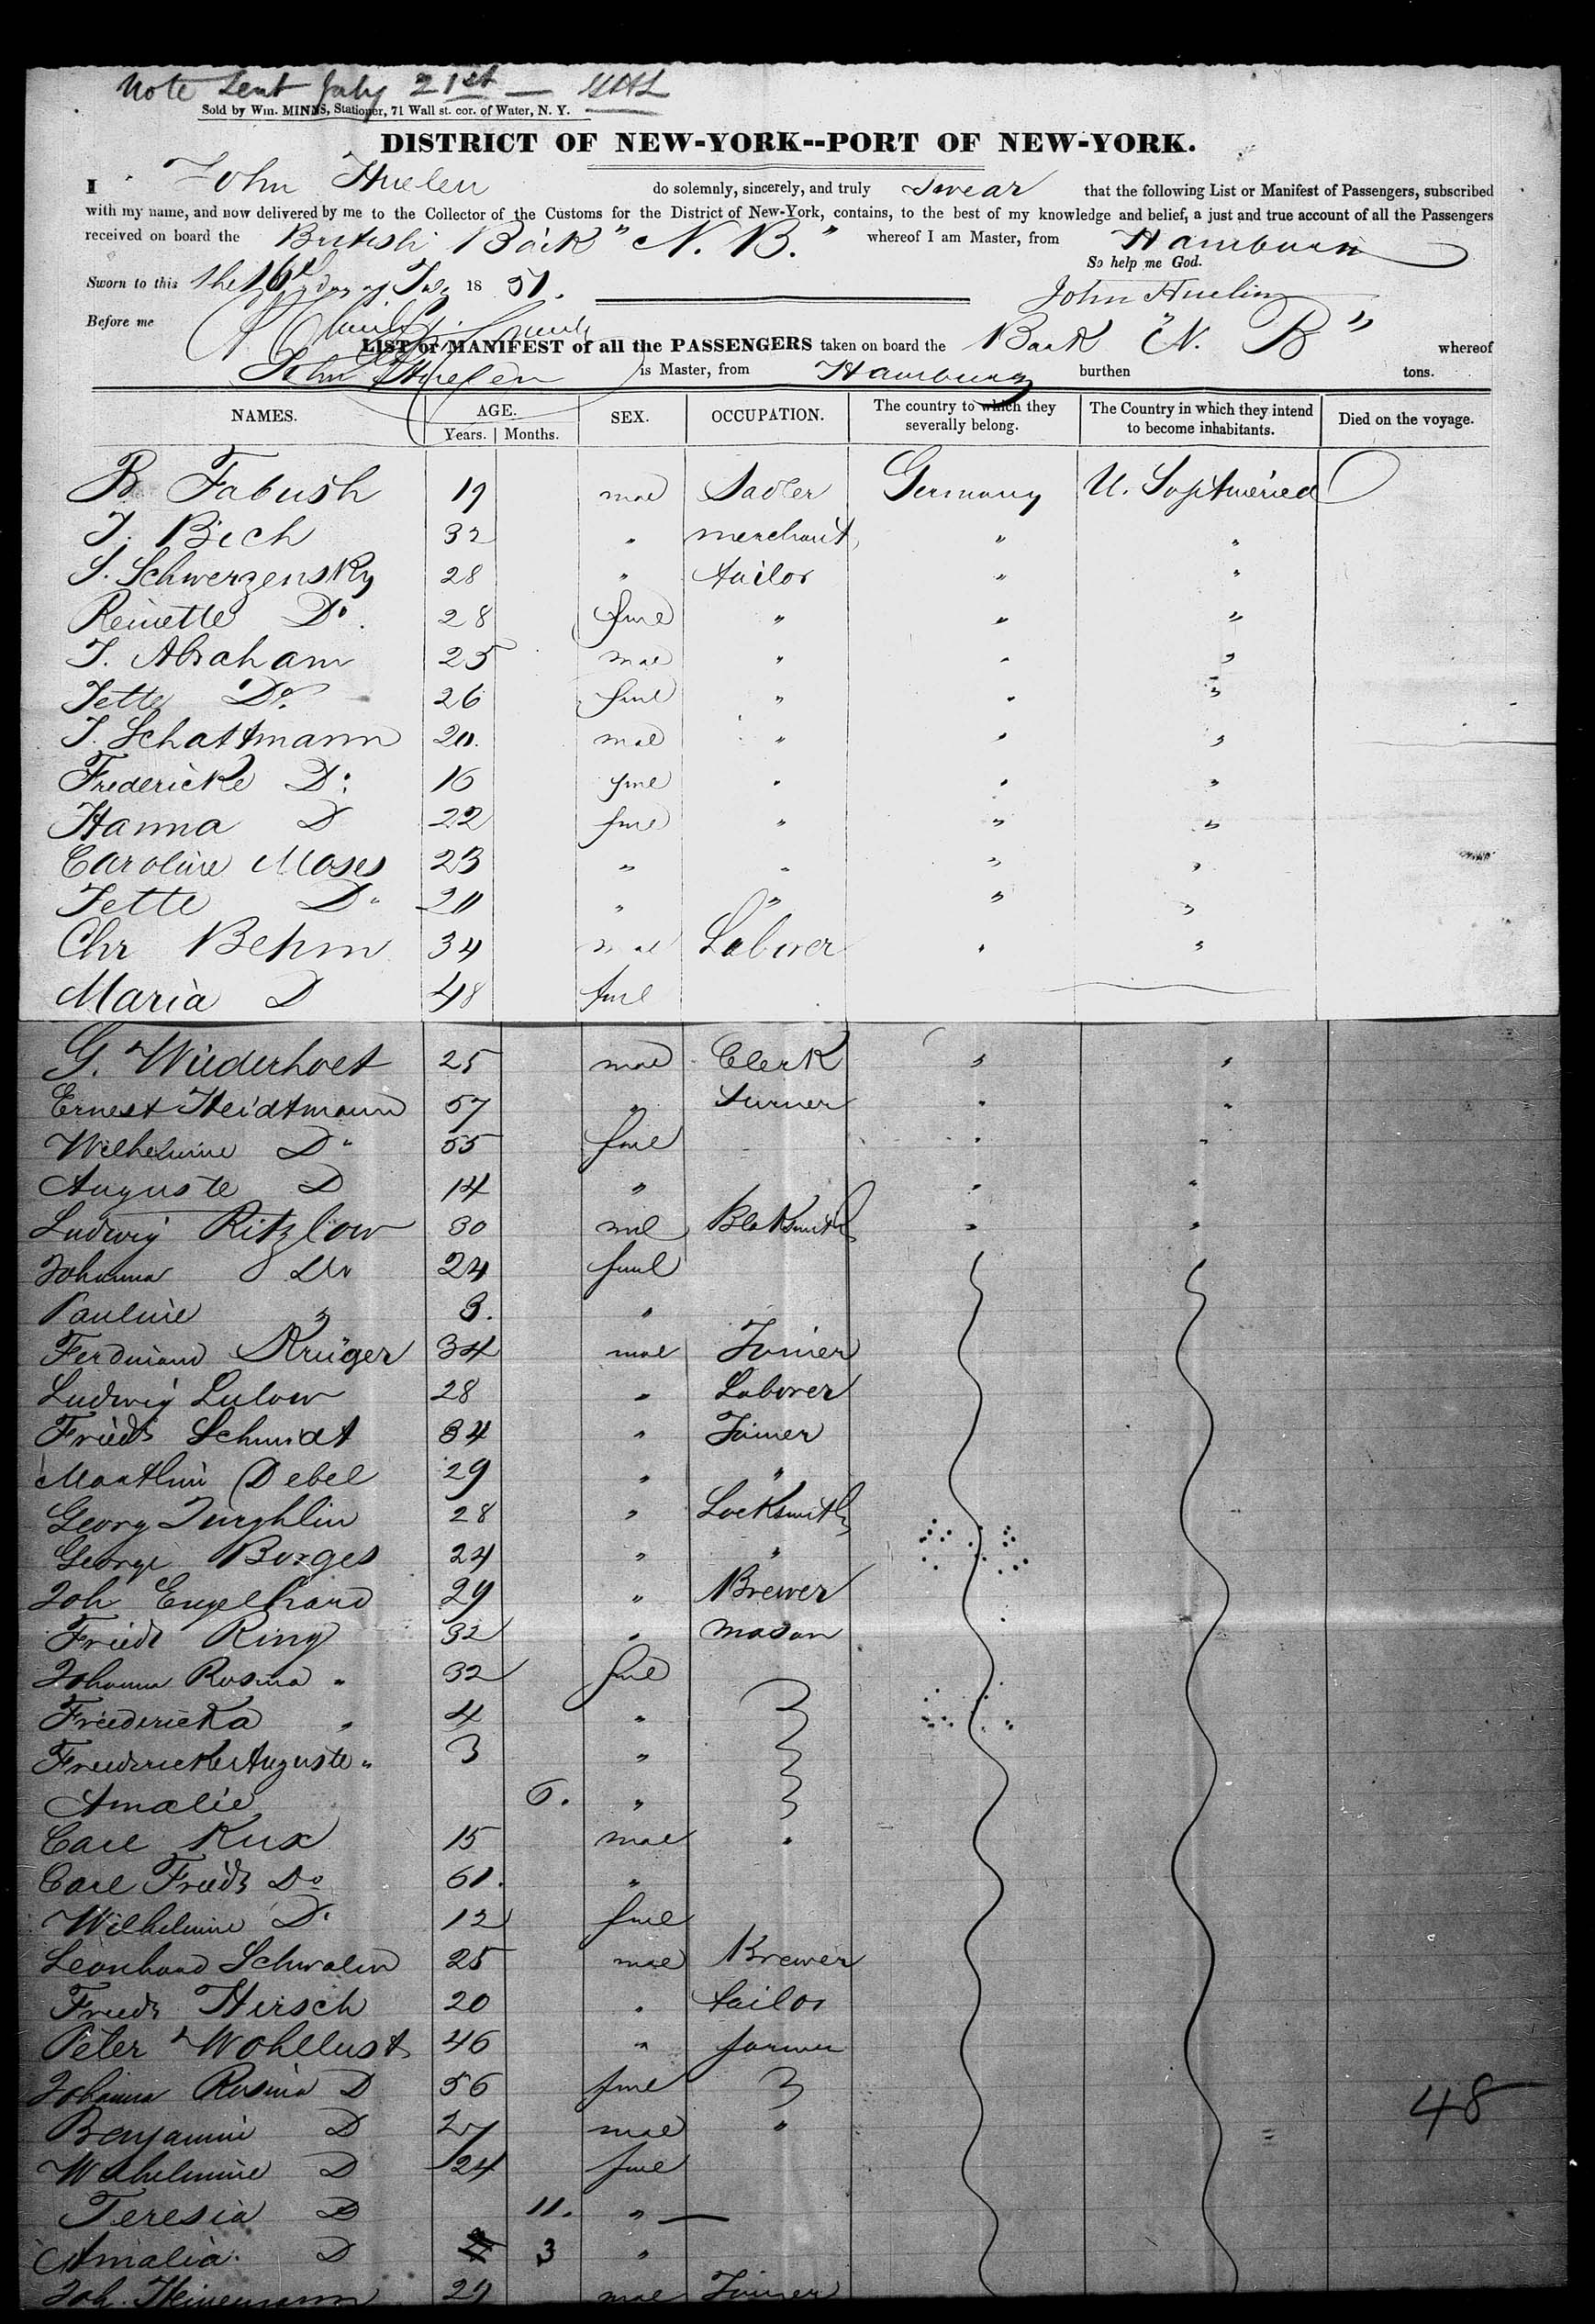 Note sent July 21st —
Sold by Wm. MINNS, Stationer, 71 Wall st. cor. of Water, N. Y.
DISTRICT OF NEW-YORK--PORT OF NEW-YORK.
I John Huelen do solemnly, sincerely, and truly swear that the following List or Manifest of Passengers, subscribed
with my name, and now delivered by me to the Collector of the Customs for the District of New-York, contains, to the best of my knowledge and belief, a just and true account of all the Passengers
received on board the British Bark "N. B." whereof I am Master, from Hamburg
So help me God.
Sworn to this the 16th day of 18 51.
John Huelin
Before me
LIST or MANIFEST of all the PASSENGERS taken on board the Bark "N. B" whereof
John Huelen is Master, from Hamburg burthen tons.
NAMES. AGE. Years. Months. SEX. OCCUPATION. The country to which they severally belong. The Country in which they intend to become inhabitants. Died on the voyage.
B Fabush 19 mal Sadler Germany U.
J. Bich 32 " merchant " "
S. Schwerzensky 28 " tailor " "
Reinette Do. 28 fml " " "
J. Abraham 25 mal " " "
Jette Do. 26 fml " " "
J. Schattmann 20. mal " " "
Fredericke D: 16 fml " " "
Hanna D 22 fml " " "
Caroline Moses 23 " " " "
Jette D" 20 " " " "
Chr Behm 34 mal Laborer " "
Maria D 48 fml
G. Wiederholt 25 mal Clerk " "
Ernest Heidtmann 57 " turner " "
Wilhelmine D" 55 fml " "
Auguste D 14 " " "
Ludwig Ritzlow 30 ml Blaksmith " "
Johanna Do 24 fml
Pauline " 3. "
Ferdinand Krüger 34 mal Joiner
Ludwig Lulow 28 " Laborer
Friedr Schmidt 34 " Joiner
Debel 29 " "
Georg 28 " Locksmith
George Borges 24 " "
Joh Engelhard 29 " Brewer
Friedr Ring 32 " mason
Johanna Rosina " 32 fml
Friedericka " 4 "
Friedericke Auguste " 3 "
Amalie 6. "
Carl Kux 15 mal "
Carl Friedr Do 61. "
Wilhelmine D. 12 fml
Leonhard Schwalm 25 mal Brewer
Friedr Hirsch 20 " tailor
Peter Wohllust 46 " farmer
Johanna Rosina D 56 fml
Benjamin D 27 mal "
Wilhelmine D 24 fml
48
Teresia D 11. " —
Amalia. D 3 "
Joh. Heinemann 29 mal Joiner